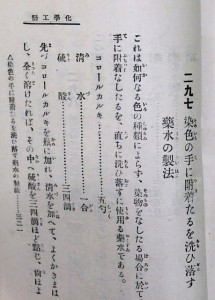 化學工藝
二九七 染色の手に附着たるを洗ひ落す
藥水の製法
これは如何なる色の種類によらず、染物をなしたる場合に於て
手に附着なしたるを、直ちに洗ひ落すに使用る藥水である。
コロールカルキ 五匁
清水 一合
硫酸 三四滴
先づコロールカルキを瓶に加れ、清水を加へて、よくかきまは
し、全く溶けたれば、その中へ硫酸を三四滴ほど點じ、尙ほよ
△染色の手に附着たるを洗ひ落す藥水の製法